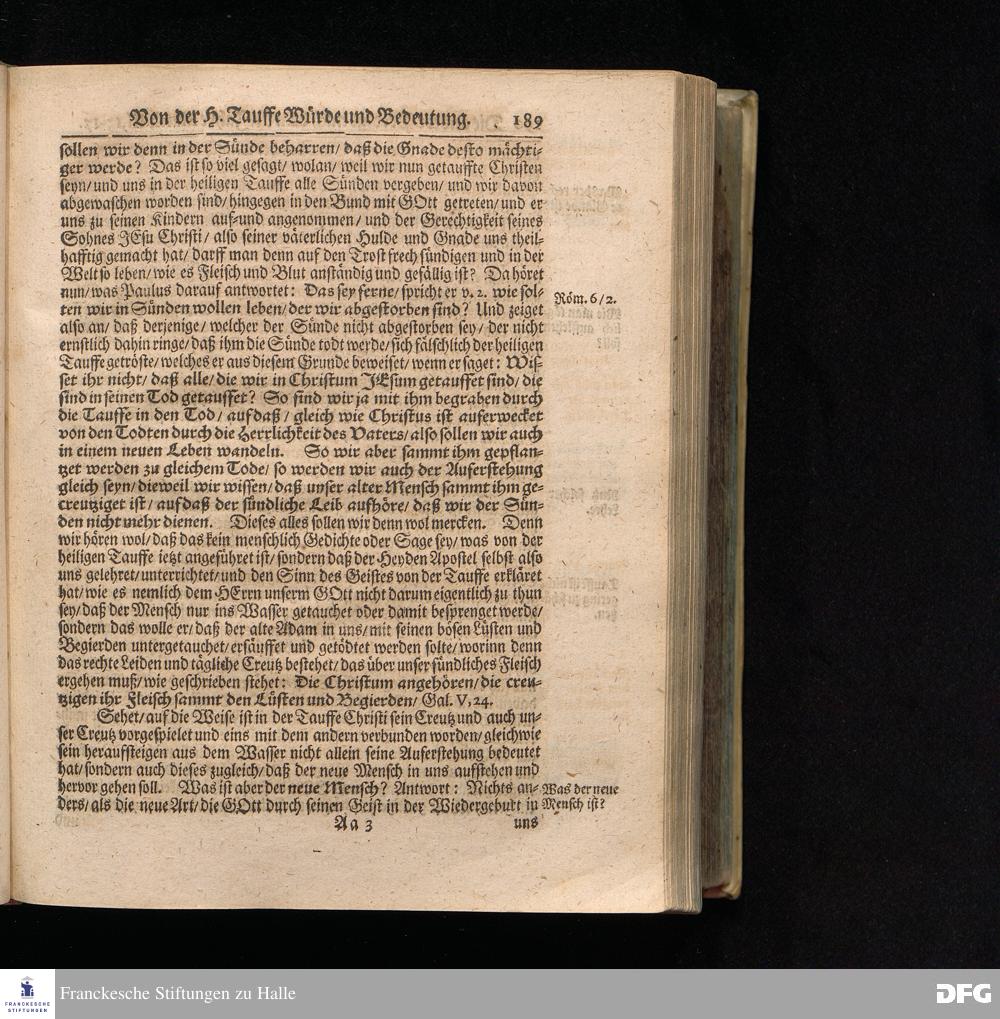 Von der H. Tauffe Würde und Bedeutung. 189
sollen wir denn in der Sünde beharren/ daß die Gnade desto mächti-
ger werde? Das ist so viel gesagt/ wolan/ weil wir nun getauffte Christen
seyn/ und uns in der heiligen Tauffe alle Sünden vergeben/ und wir davon
abgewaschen worden sind/ hingegen in den Bund mit GOtt getreten/ und er
uns zu seinen Kindern auf- und angenommen/ und der Gerechtigkeit seines
Sohnes JEsu Christi/ also seiner väterlichen Hulde und Gnade uns theil-
hafftig gemacht hat/ darff man denn auf den Trost frech sündigen und in der
Welt so leben/ wie es Fleisch und Blut anständig und gefällig ist? Da höret
nun/ was Paulus darauf antwortet: Das sey ferne/ spricht er v. 2. wie sol-
Röm. 6/2.
ten wir in Sünden wollen leben/ der wir abgestorben sind? Und zeiget
also an/ daß derjenige/ welcher der Sünde nicht abgestorben sey/ der nicht
ernstlich dahin ringe/ daß ihm die Sünde todt werde/ sich fälschlich der heiligen
Tauffe getröste/ welches er aus diesem Grunde beweiset/ wenn er saget: Wis-
set ihr nicht/ daß alle/ die wir in Christum JEsum getauffet sind/ die
sind in seinen Tod getauffet? So sind wir ja mit ihm begraben durch
die Tauffe in den Tod/ auf daß/ gleich wie Christus ist auferwecket
von den Todten durch die Herrlichkeit des Vaters/ also sollen wir auch
in einem neuen Leben wandeln. So wir aber sammt ihm gepflan-
tzet werden zu gleichem Tode/ so werden wir auch der Auferstehung
gleich seyn/ dieweil wir wissen/ daß unser alter Mensch sammt ihm ge-
creutziget ist/ auf daß der sündliche Leib aufhöre/ daß wir der Sün-
den nicht mehr dienen. Dieses alles sollen wir denn wol mercken. Denn
wir hören wol/ daß das kein menschlich Gedichte oder Sage sey/ was von der
heiligen Tauffe ietzt angeführet ist/ sondern daß der Heyden Apostel selbst also
uns gelehret/ unterrichtet/ und den Sinn des Geistes von der Tauffe erkläret
hat/ wie es nemlich dem HErrn unserm GOtt nicht darum eigentlich zu thun
sey/ daß der Mensch nur ins Wasser getauchet oder damit besprenget werde/
sondern das wolle er/ daß der alte Adam in uns/ mit seinen bösen Lüsten und
Begierden untergetauchet/ ersäuffet und getödtet werden solte/ worinn denn
das rechte Leiden und tägliche Creutz bestehet/ das über unser sündliches Fleisch
ergehen muß/ wie geschrieben stehet: Die Christum angehören/ die creu-
tzigen ihr Fleisch sammt den Lüsten und Begierden/ Gal. V, 24.
Sehet/ auf die Weise ist in der Tauffe Christi sein Creutz und auch un-
ser Creutz vorgespielet und eins mit dem andern verbunden worden/ gleichwie
sein heraufsteigen aus dem Wasser nicht allein seine Auferstehung bedeutet
hat/ sondern auch dieses zugleich/ daß der neue Mensch in uns aufstehen und
hervor gehen soll. Was ist aber der neue Mensch? Antwort: Nichts an-
Was der neue
Mensch ist?
ders/ als die neue Art/ die GOtt durch seinen Geist in der Wiedergeburt in
Aa 3 uns
FRANCKESCHE
STIFTUNGEN
Franckesche Stiftungen zu Halle
DFG